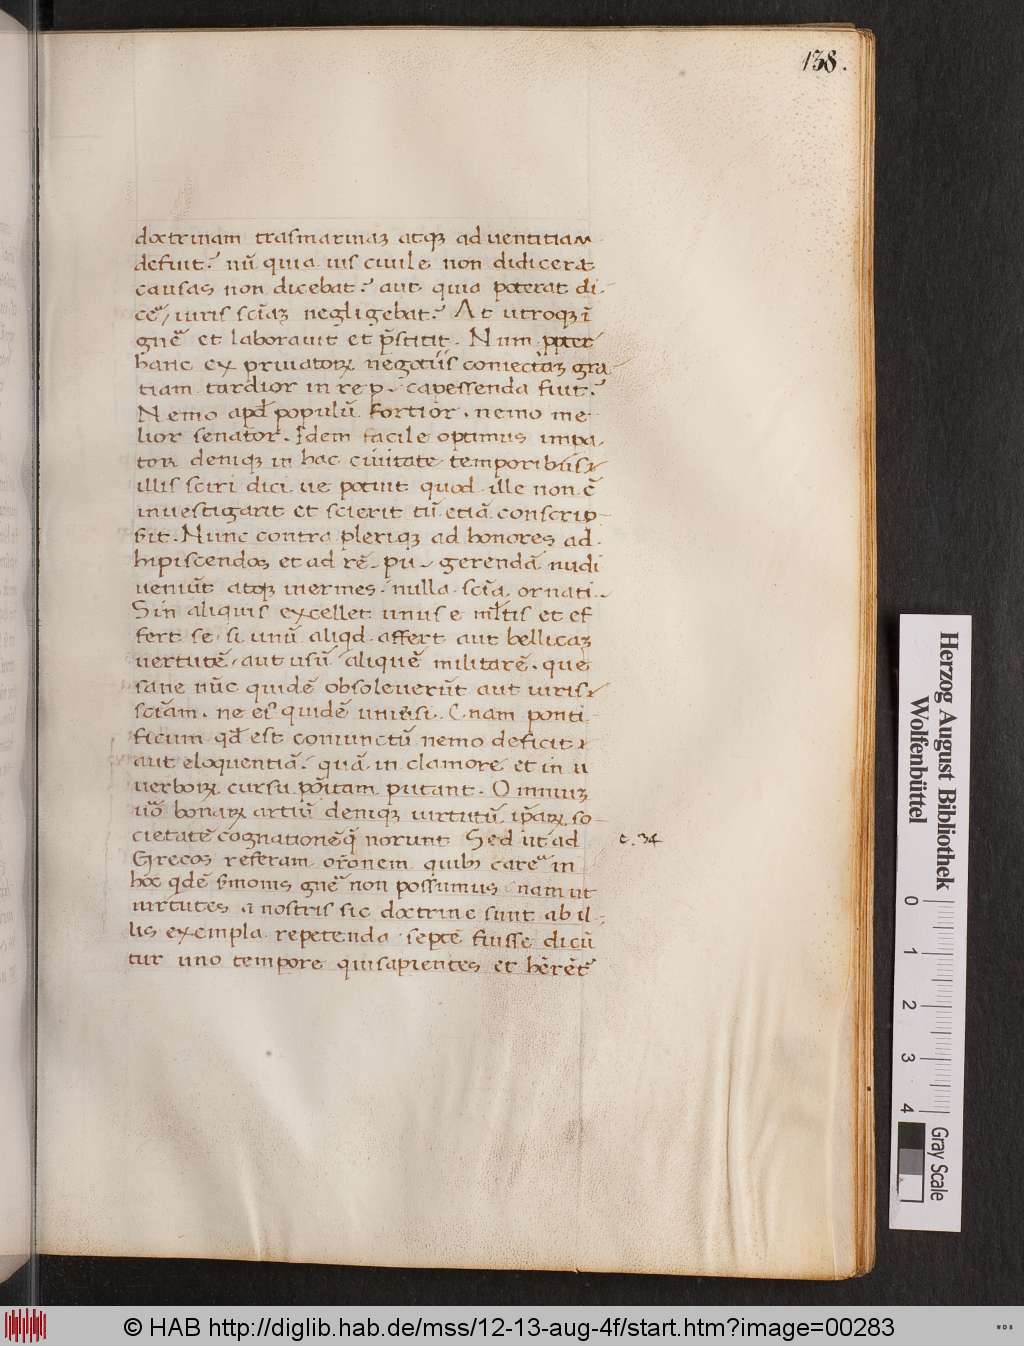 138.
doctrinam trasmarinaꝫ atqꝫ aduentitiam
defuit? nũ quia ius ciuile non didicerat
causas non dicebat? aut quia poterat di-
ceʳ, iuris scĩaꝫ negligebat? At utroqꝫ ĩ
gñe et laborauit et p̃stitit. Num ꝓpter
hanc ex priuatoꝝ negotiis coniectaꝫ gra
tiam tardior in re p. capessenda fuit?
Nemo apđ populũ fortior. nemo me-
lior senator. Idem facile optimus impa-
tor deniqꝫ in hac ciuitate temporibus
illis sciri dici ue potuit quod ille non ẽ
inuestigarit et scierit tũ etiã conscrip-
sit. Nunc contra pleriqꝫ ad honores ad-
hipiscendos et ad rẽ. pu. gerendã nudi
ueniũt atqꝫ inermes. nulla scĩa ornati.
Sin aliquis excellet unus e ml̃tis et ef
fert se si unũ aliqđ affert aut bellicaꝫ
uertutẽ, aut usũ aliquẽ militarẽ. que
sane nũc quidẽ obsoleuerũt aut iuris
scĩam. ne ei' quidẽ uniũsi. Cnam ponti
ficium qđ est coniunctũ nemo deficit
aut eloquentiã. quã in clamore et in u
uerboꝝ cursu põitam putant. Omniuꝫ
uõ bonaꝝ artiũ deniqꝫ uirtutũ ip̃aꝝ so-
cietatẽ cognationẽq̃ norunt Sed ut ad
c. 34
Grecos referam or̃onem quibꝫ careʳ in
hoc qđẽ s̃monis gñe non possumus nam ut
uirtutes a nostris sic doctrine sunt ab il-
lis exempla repetenda septẽ fuisse dicũ
tur uno tempore qui sapientes et hẽrẽtʳ
Herzog August Bibliothek
Wolfenbüttel
0 1 2 3 4
Gray Scale
© HAB http://diglib.hab.de/mss/12-13-aug-4f/start.htm?image=00283